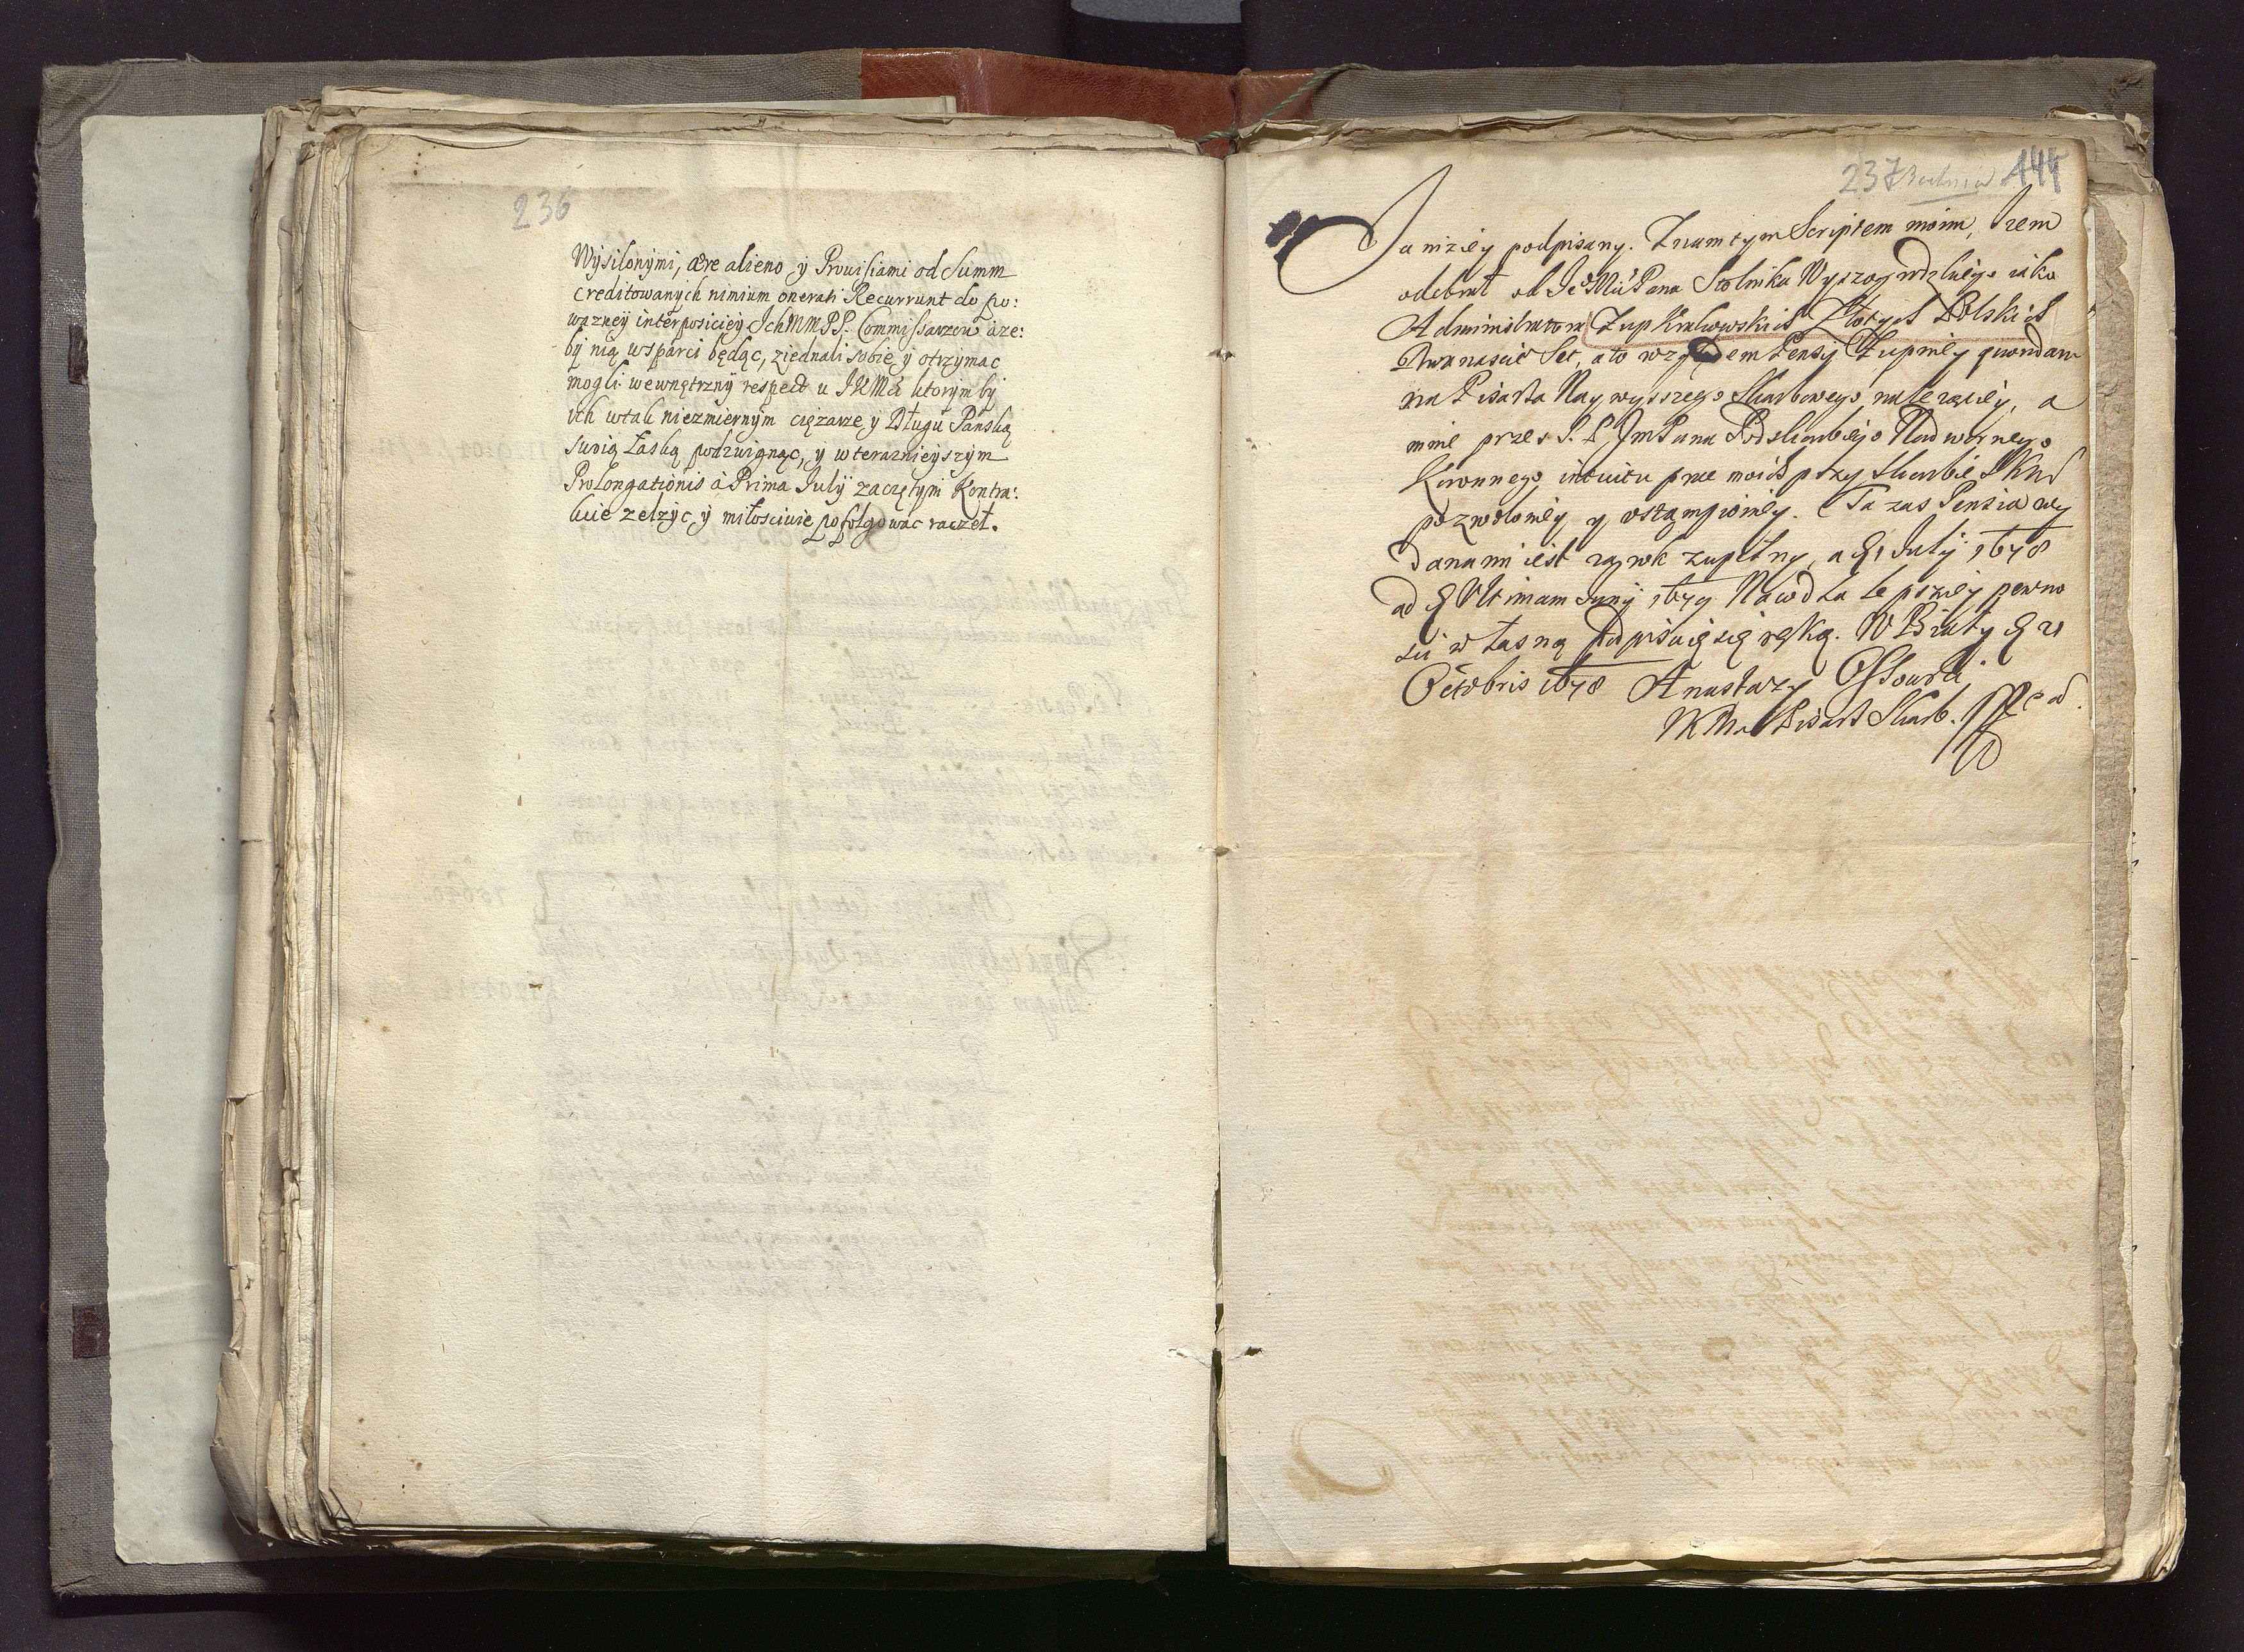 236
Wysilonymi, ære alieno y Prouisiami od Summ
creditowanych nimium onerati Recurrunt do po:
wazney interposiciey IchMMPP. Commissarzow aze:
by nią wsparci będąc, ziednali sobie y otrzymac
mogli wewnętrzny respect u IKMci ktorym by
ich wtak niezmiernym cięzarze y Długu Pańską
swoią Łaską podzwignąc, y w teraznieyszym
Prolongationis à Prima July zaczętym Kontra:
kcie zelzyc y miłosciwie pofolgowac raczeł.
237 Bochnia 444
Ja nizey podpisany. Znam tym Scriptem moim, Izem
odebrał od Je Mci Pana Stolnika Wyszogrodzkiego iako
Administratora Zup Krakowskich Złotych Polskich
Dwanascie Set, a to względem Pensy Zupney quondam
na Pisarza Naywyzszego Skarbowego nalezącey, a
mnie przez S. P. Jm Pana Podskarbiego Nadwornego
Koronnego, intuitu prac moich przy Skarbie JKM
pozwoloney y ustąpioney. Ta zas Pensia wy
dana mi iest za rok zupełny, a d 1 July 1678
ad d Ultimam Juny 1679 Na co dla lepszey pewno
sci własną podpisuię się ręką. W Biały d 21
Octobris 1678 Anastazy Ossowski
JKM Pisarz Skarb.